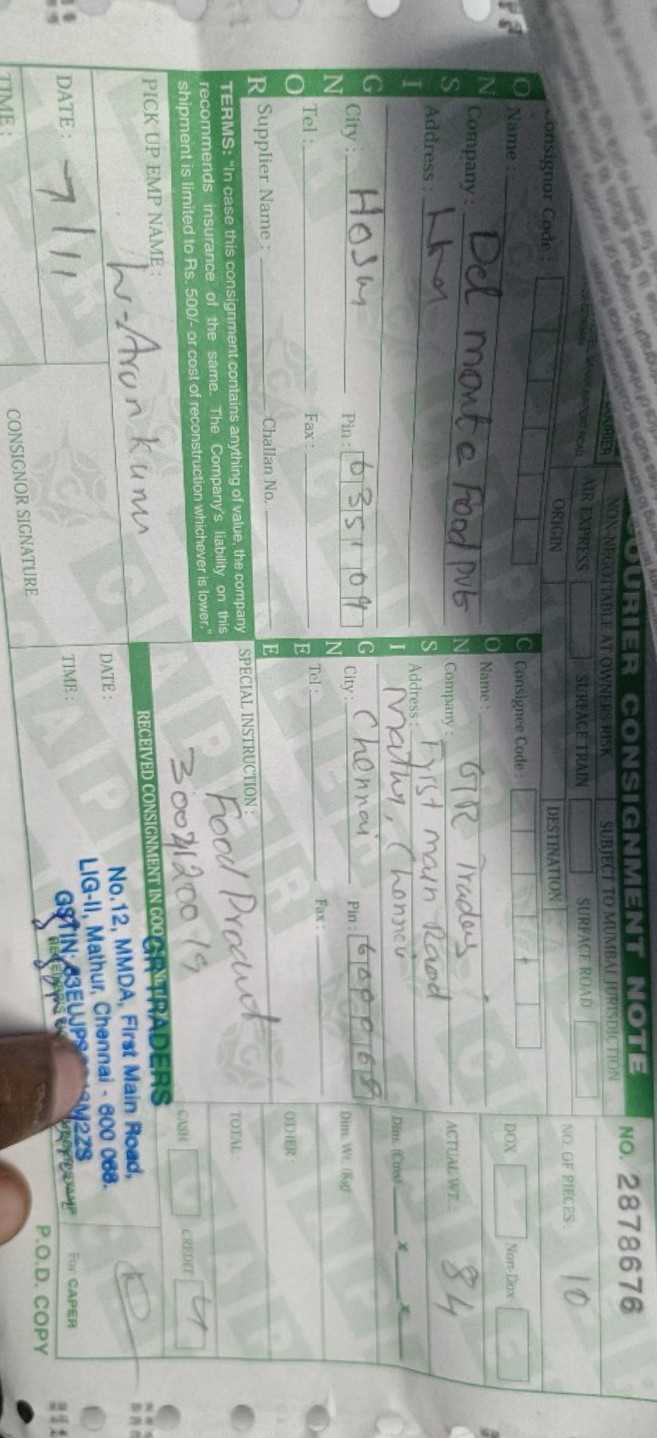 COURIER CONSIGNMENT NOTE
NO. 2878676
NON-NEGOTIABLE AT OWNERS RISK
SUBJECT TO MUMBAI JURISDICTION
AIR EXPRESS
SURFACE TRAIN
SURFACE ROAD
NO. OF PIECES: 10
ORIGIN
DESTINATION
Consignor Code :
Name :
Company : Del monte Food Pvt
Address :
City : Hosur
Pin : 635109
Tel :
Fax :
Supplier Name :
Challan No.
CONSIGNOR
CONSIGNEE
Consignee Code :
Name : GR Traders
Company : First main Road
Address : Mathur, Chennai
City : Chennai
Pin : 600068
Tel :
Fax :
DOX
Non-Dox
ACTUAL WT. : 84
Dim. (Cms) x x
Dim. Wt. (Kg)
ODIER :
TOTAL
CASH
CREDIT
TERMS: "In case this consignment contains anything of value, the company
recommends insurance of the same. The Company's liability on this
shipment is limited to Rs. 500/- or cost of reconstruction whichever is lower."
SPECIAL INSTRUCTION :
Food Product
PICK UP EMP NAME :
Arunkumar
DATE : 7/11
TIME :
CONSIGNOR SIGNATURE
RECEIVED CONSIGNMENT IN GOO
DATE :
TIME :
GR TRADERS
No.12, MMDA, First Main Road,
LIG-II, Mathur, Chennai - 600 068.
GSTIN:
For CAPER
P.O.D. COPY